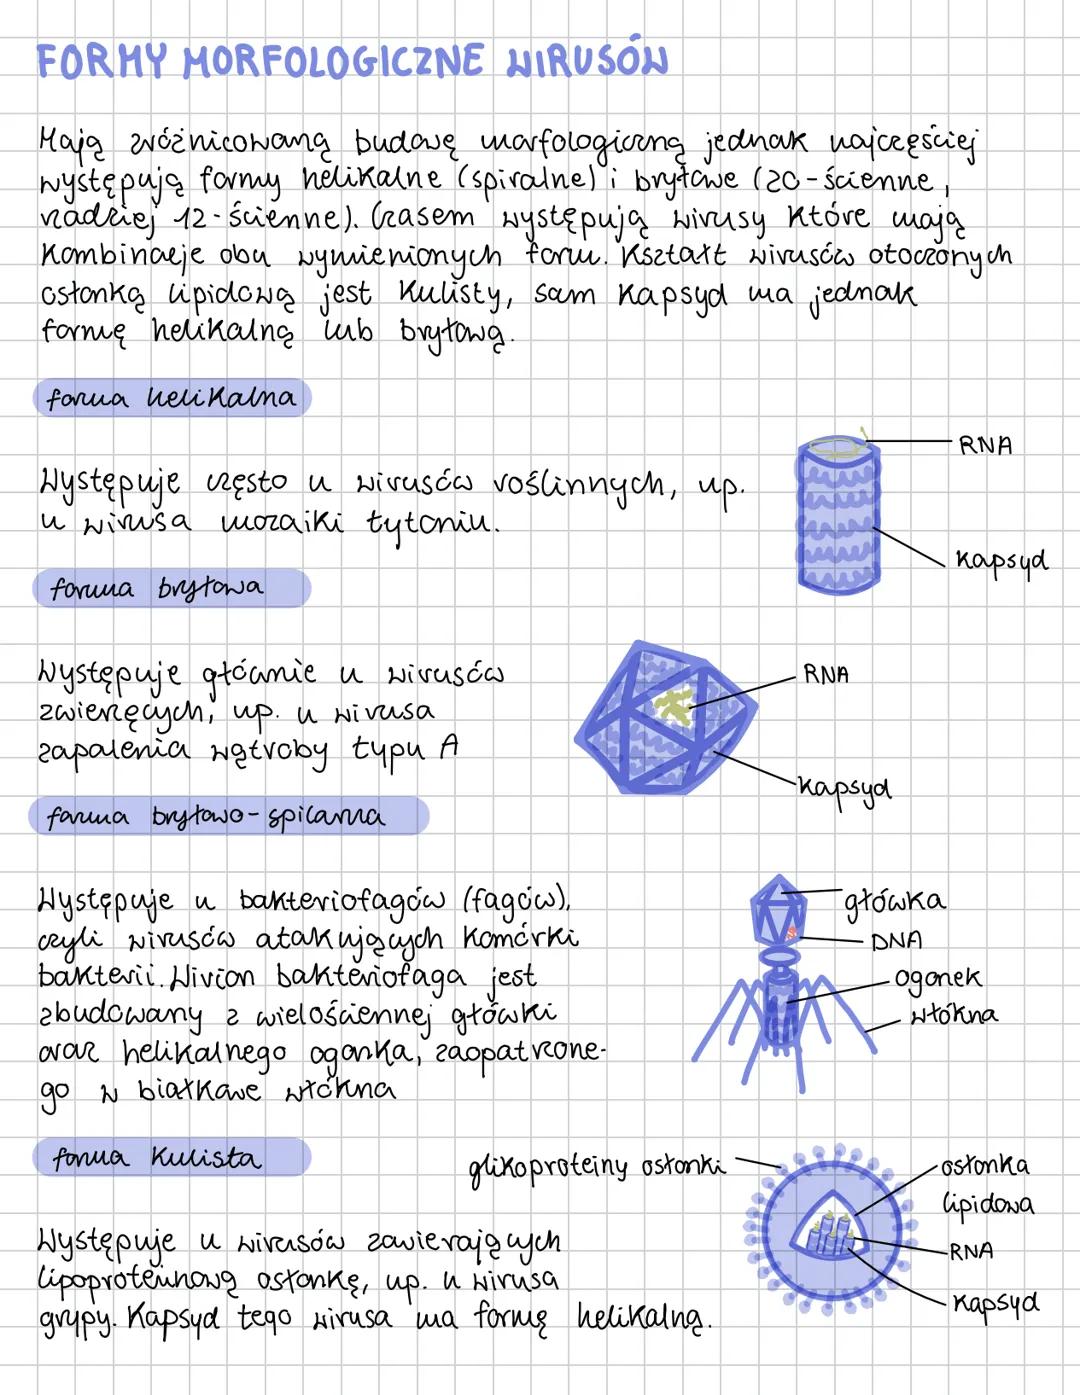 FORMY MORFOLOGICZNE WIRUSÓW
Mają zróżnicowaną budowę morfologiczną jednak najczęściej
występują formy helikalne (spiralne) i bryłowe (20-ścienne,
rzadziej 12-ścienne). Czasem występują wirusy które mają
kombinacje obu wymienionych form. Kształt wirusów otoczonych
osłonką lipidową jest kulisty, sam kapsyd ma jednak
formę helikalną lub bryłową.
forma helikalna
RNA
Występuje często u wirusów roślinnych, np.
u wirusa mozaiki tytoniu.
kapsyd
forma bryłowa
Występuje głównie u wirusów
zwierzęcych, np. u wirusa
zapalenia wątroby typu A
RNA
kapsyd
forma bryłowo-spiralna
Występuje u bakteriofagów (fagów),
czyli wirusów atakujących komórki
bakterii. Wirion bakteriofaga jest
zbudowany z wielościennej główki
oraz helikalnego ogonka, zaopatrzone-
go w białkowe włókna
główka
DNA
ogonek
włókna
forma kulista
glikoproteiny osłonki
osłonka
lipidowa
RNA
kapsyd
Występuje u wirusów zawierających
lipoproteinową osłonkę, np. u wirusa
grypy. Kapsyd tego wirusa ma formę helikalną.